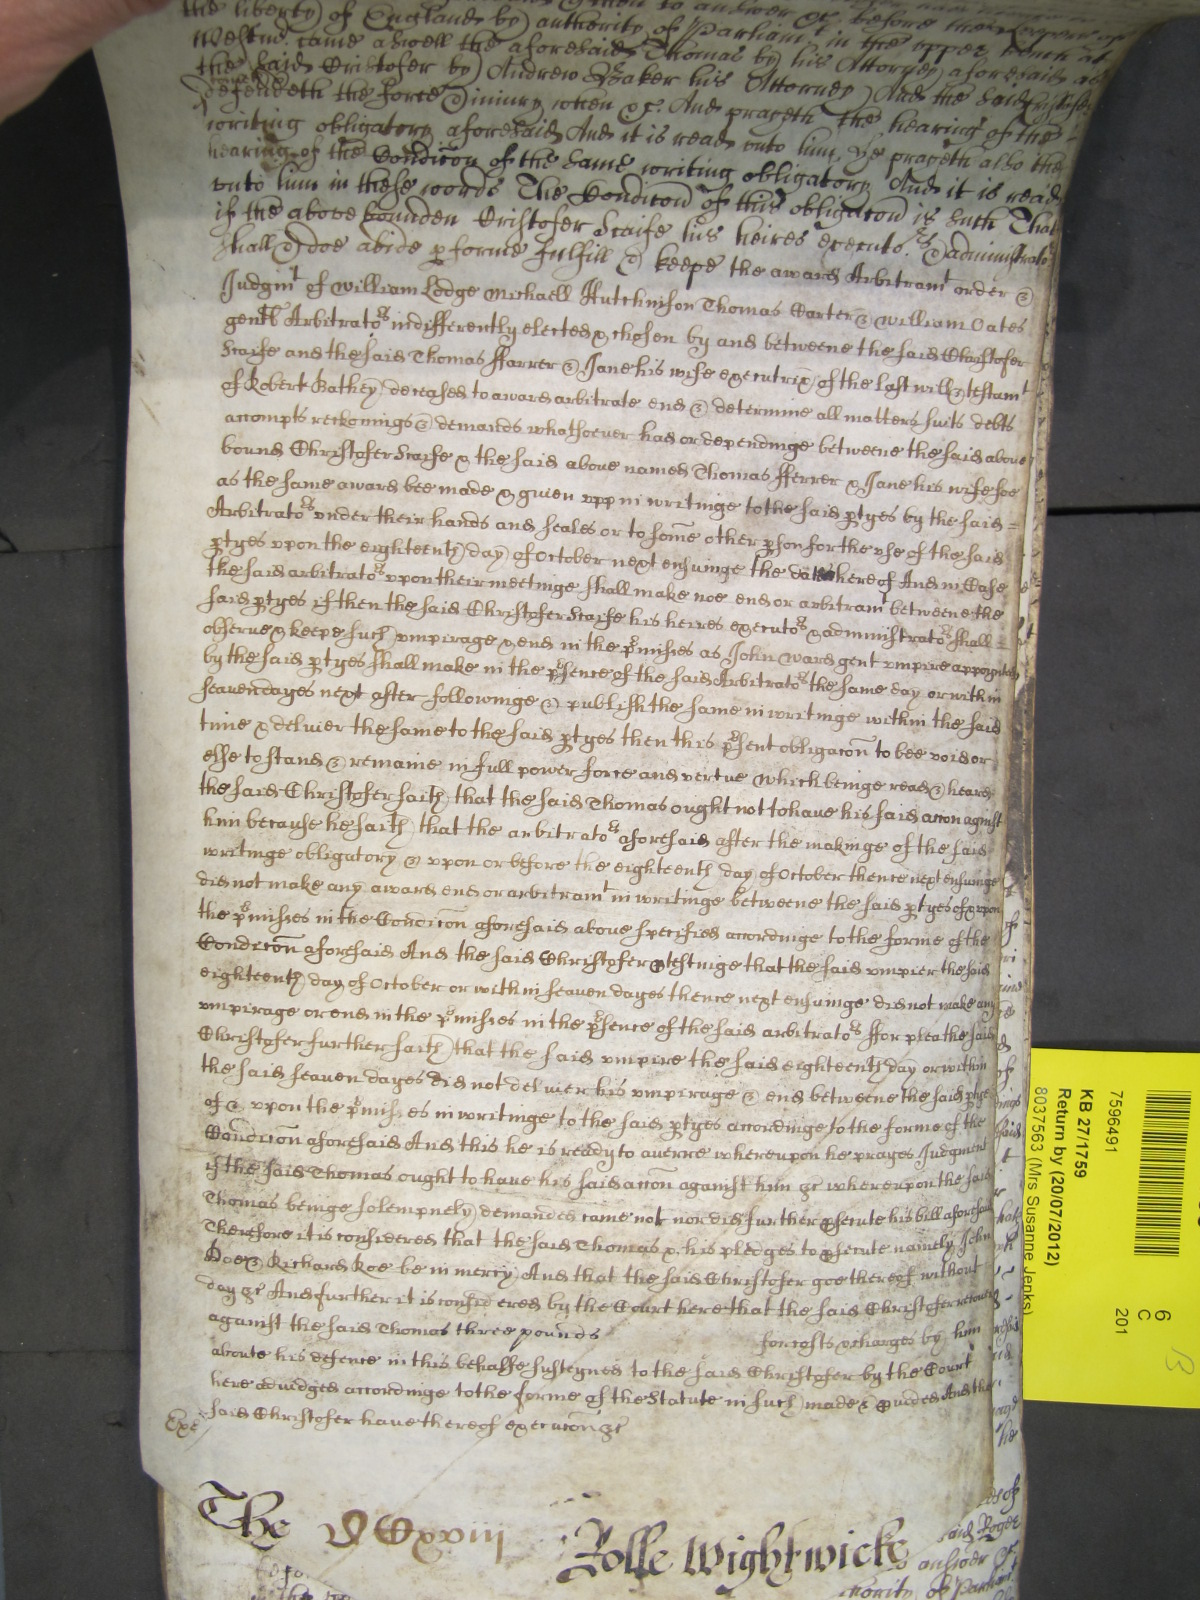 the liberty of England by authority of Parliamt in the upper bench at
Westmr. came aswell the aforesaid Thomas by his Attorney aforesaid as
the said Cristofer by Andrew Baker his Attorney And the said Cristofer
defendeth the force & iniury when &c. And prayeth the hearing of the
writing obligatory aforesaid And it is read vnto him, He prayeth also the
hearing of the Condicōn of the same writing obligatory And it is read
vnto him in these words The Condicōn of this obligacōn is such That
if the above bounden Cristofer Scaife his heires executors & administrators
shall & doe abide pforme fulfill & keepe the award Arbitramt order &
Judgmt of William Lodge Michaell Hutchinson Thomas Carter & William Oates
gentl Arbitrators indifferently elected & chosen by and betweene the said Christofer
Scaife and the said Thomas ffarrer & Jane his wife executrix of the last will & testamt
of Robert Bathey deceased to award arbitrate end & determine all matters suits debts
accompts reckonings & demands whatsoever had or dependinge betweene the said above
bound Christofer Scaife & the said above named Thomas fferrer & Jane his wife soe
as the same award bee made & given vpp in writinge to the said ptyes by the said
Arbitrators vnder their hands and seales or to some other pson for the vse of the said
ptyes vpon the eighteenth day of October next ensuinge the date hereof And in Case
the said arbitrators vpon their meetinge shall make noe end or arbitramt betweene the
said ptyes if then the said Christofer Scaife his heires executors & administrators shall
observe & keepe such vmpirage & end in the pmisses as John Ward gent vmpire appoynted
by the said ptyes shall make in the psence of the said Arbitrators the same day or within
seaven dayes next after followinge & publish the same in writinge within the said
time & deliver the same to the said ptyes then this psent obligacōn to bee void or
else to stand & remaine in full power force and vertue which beinge read & heard
the said Christofer saith that the said Thomas ought not to have his said accōn against
him because he saith that the arbitrators aforesaid after the makinge of the said
writinge obligatory & vpon or before the eighteenth day of October thence next ensuinge
did not make any award end or arbitramt in writinge betweene the said ptyes of & vpon
the pmisses in the Condicōn aforesaid above specified accordinge to the forme of the
Condicōn aforesaid And the said Christofer ptestinge that the said vmpier the said
eighteenth day of October or within seaven dayes thence next ensuinge did not make any
vmpirage or end in the pmisses in the psence of the said arbitrators ffor plea the said
Christofer further saith that the said vmpire the said eighteenth day or within
the said seaven dayes did not deliver his vmpirage & end betweene the said ptyes
of & vpon the pmisses in writinge to the said ptyes accordinge to the forme of the
Condicōn aforesaid And this he is ready to averre whereupon he prayes Judgment
if the said Thomas ought to have his said accōn against him &c whereupon the said
Thomas beinge solempnely demanded came not nor did further psecute his bill aforesaid
Therefore it is considered that the said Thomas & his pledges to psecute namely John
Doe & Richard Roe be in mercy And that the said Christofer goe thereof without
day &c And further it is considered by the Court here that the said Christofer recover
against the said Thomas three pounds for costs & charges by him
aboute his defence in this behalfe susteyned to the said Christofer by the Court
here adiudged accordinge to the forme of the Statute in such made & pvided And the
said Christofer have thereof execucōn &c
Exr
The
Rolle Wightwicke
6
C
201
7596491
KB 27/1759
Return by (20/07/2012)
8037563 (Mrs Susanne Jenks)